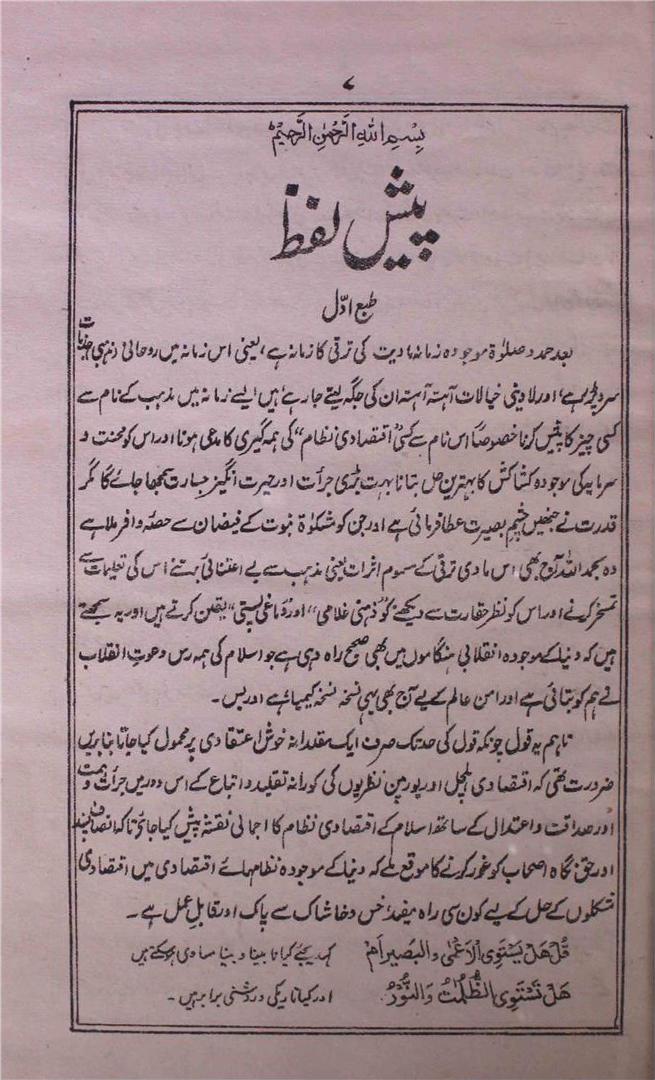 ۷
بِسْمِ اللهِ الرَّحْمٰنِ الرَّحِیْمِ
پیش لفظ
طبع اوّل
بعد حمد و صلوٰۃ موجودہ زمانہ مادیت کی ترقی کا زمانہ ہے، یعنی اس زمانہ میں روحانی و مذہبی جذبات
سرد پڑ رہے ہیں اور لادینی خیالات آہستہ آہستہ ان کی جگہ لیتے جا رہے ہیں ایسے زمانہ میں مذہب کے نام سے
کسی چیز کا پیش کرنا خصوصاً اس نام سے کسی "اقتصادی نظام" کی ہمہ گیری کا مدعی ہونا اور اس کو محنت و
سرمایہ کی موجودہ کشاکش کا بہترین حل بتانا بہت بڑی جرأت اور حیرت انگیز جسارت سمجھا جائے گا مگر
قدرت نے جنھیں چشم بصیرت عطا فرمائی ہے اور جن کو مشکوٰۃ نبوت کے فیضان سے حصہ وافر ملا ہے
وہ بحمد اللہ آج بھی اس مادی ترقی کے مسموم اثرات یعنی مذہب سے بے اعتنائی برتنے اس کی تعلیمات سے
تمسخر کرنے اور اس کو نظر حقارت سے دیکھنے کو "ذہنی غلامی" اور "دماغی پستی" یقین کرتے ہیں اور یہ سمجھتے
ہیں کہ دنیا کے موجودہ انقلابی ہنگاموں میں بھی صحیح راہ وہی ہے جو اسلام کی ہمہ رس دعوتِ انقلاب
نے ہم کو بتائی ہے اور امن عالم کے لیے آج بھی یہی نسخہ نسخہ کیمیا ہے اور بس۔
تاہم یہ قول چونکہ قول کی حد تک صرف ایک مقلدانہ خوش اعتقادی پر محمول کیا جاتا بنا بریں
ضرورت تھی کہ اقتصادی ہلچل اور یورپین نظریوں کی کورانہ تقلید و اتباع کے اس دور میں جرأت و ہمت
اور صداقت و اعتدال کے ساتھ اسلام کے اقتصادی نظام کا اجمالی نقشہ پیش کیا جائے تاکہ انصاف پسند
اور حق نگاہ اصحاب کو غور کرنے کا موقع ملے کہ دنیا کے موجودہ نظامہائے اقتصادی میں اقتصادی
مشکلوں کے حل کے لیے کون سی راہ مفید، خس و خاشاک سے پاک اور قابلِ عمل ہے۔
قُلْ هَلْ يَسْتَوِى الْاَعْمٰى وَالْبَصِيْرُ اَمْ کہہ دیجئے کیا نابینا و بینا مساوی ہو سکتے ہیں
هَلْ تَسْتَوِى الظُّلُمٰتُ وَالنُّوْرُ اور کیا تاریکی و روشنی برابر ہیں۔